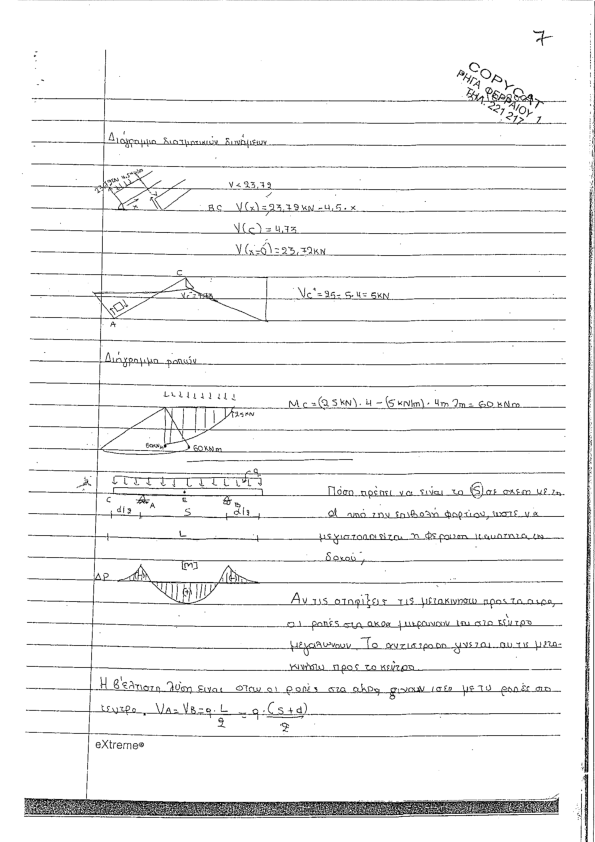 7
COPYCAT
ΡΗΓΑ ΦΕΡΡΑΙΟΥ 1
ΤΗΛ. 221 217
Διάγραμμα διατμητικών δυνάμεων
V<23,79
BC V(x)=23,79 KN-4,5·x
V(c)=4,73
V(x=0)=23,72KN
C
Vc=25-5·4=5KN
A
Διάγραμμα ροπών
Mc=(25KN)·4-(5KN/m)·4m 2m=60KNm
25KN
60KNm
q
C A E B
d/2 S d/2
L
Πόσο πρέπει να είναι το S σε σχέση με τη
d υπό την επιβολή φορτίου, ώστε να
μεγιστοποιείται η φέρουσα ικανότητα
δοκού;
ΔΡ [M]
Αν τις στηρίξεις τις μετακινήσω προς τα άκρα,
οι ροπές στα άκρα μικραίνουν και στο κέντρο
μεγαλώνουν. Το αντίστροφο γίνεται αν τις μετα-
κινήσω προς το κέντρο.
Η βέλτιστη λύση είναι όταν οι ροπές στα άκρα γίνουν ίσες με τις ροπές στο
κέντρο. VA=VB=q·L/2=q·(S+d)/2
eXtreme®